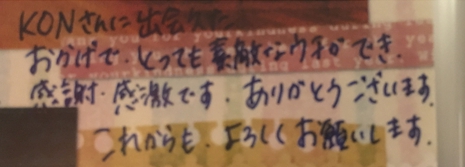 KONさんに出会えた
おかげで、とっても素敵なウチができ、
感謝・感激です。ありがとうございます。
これからも、よろしくお願いします。